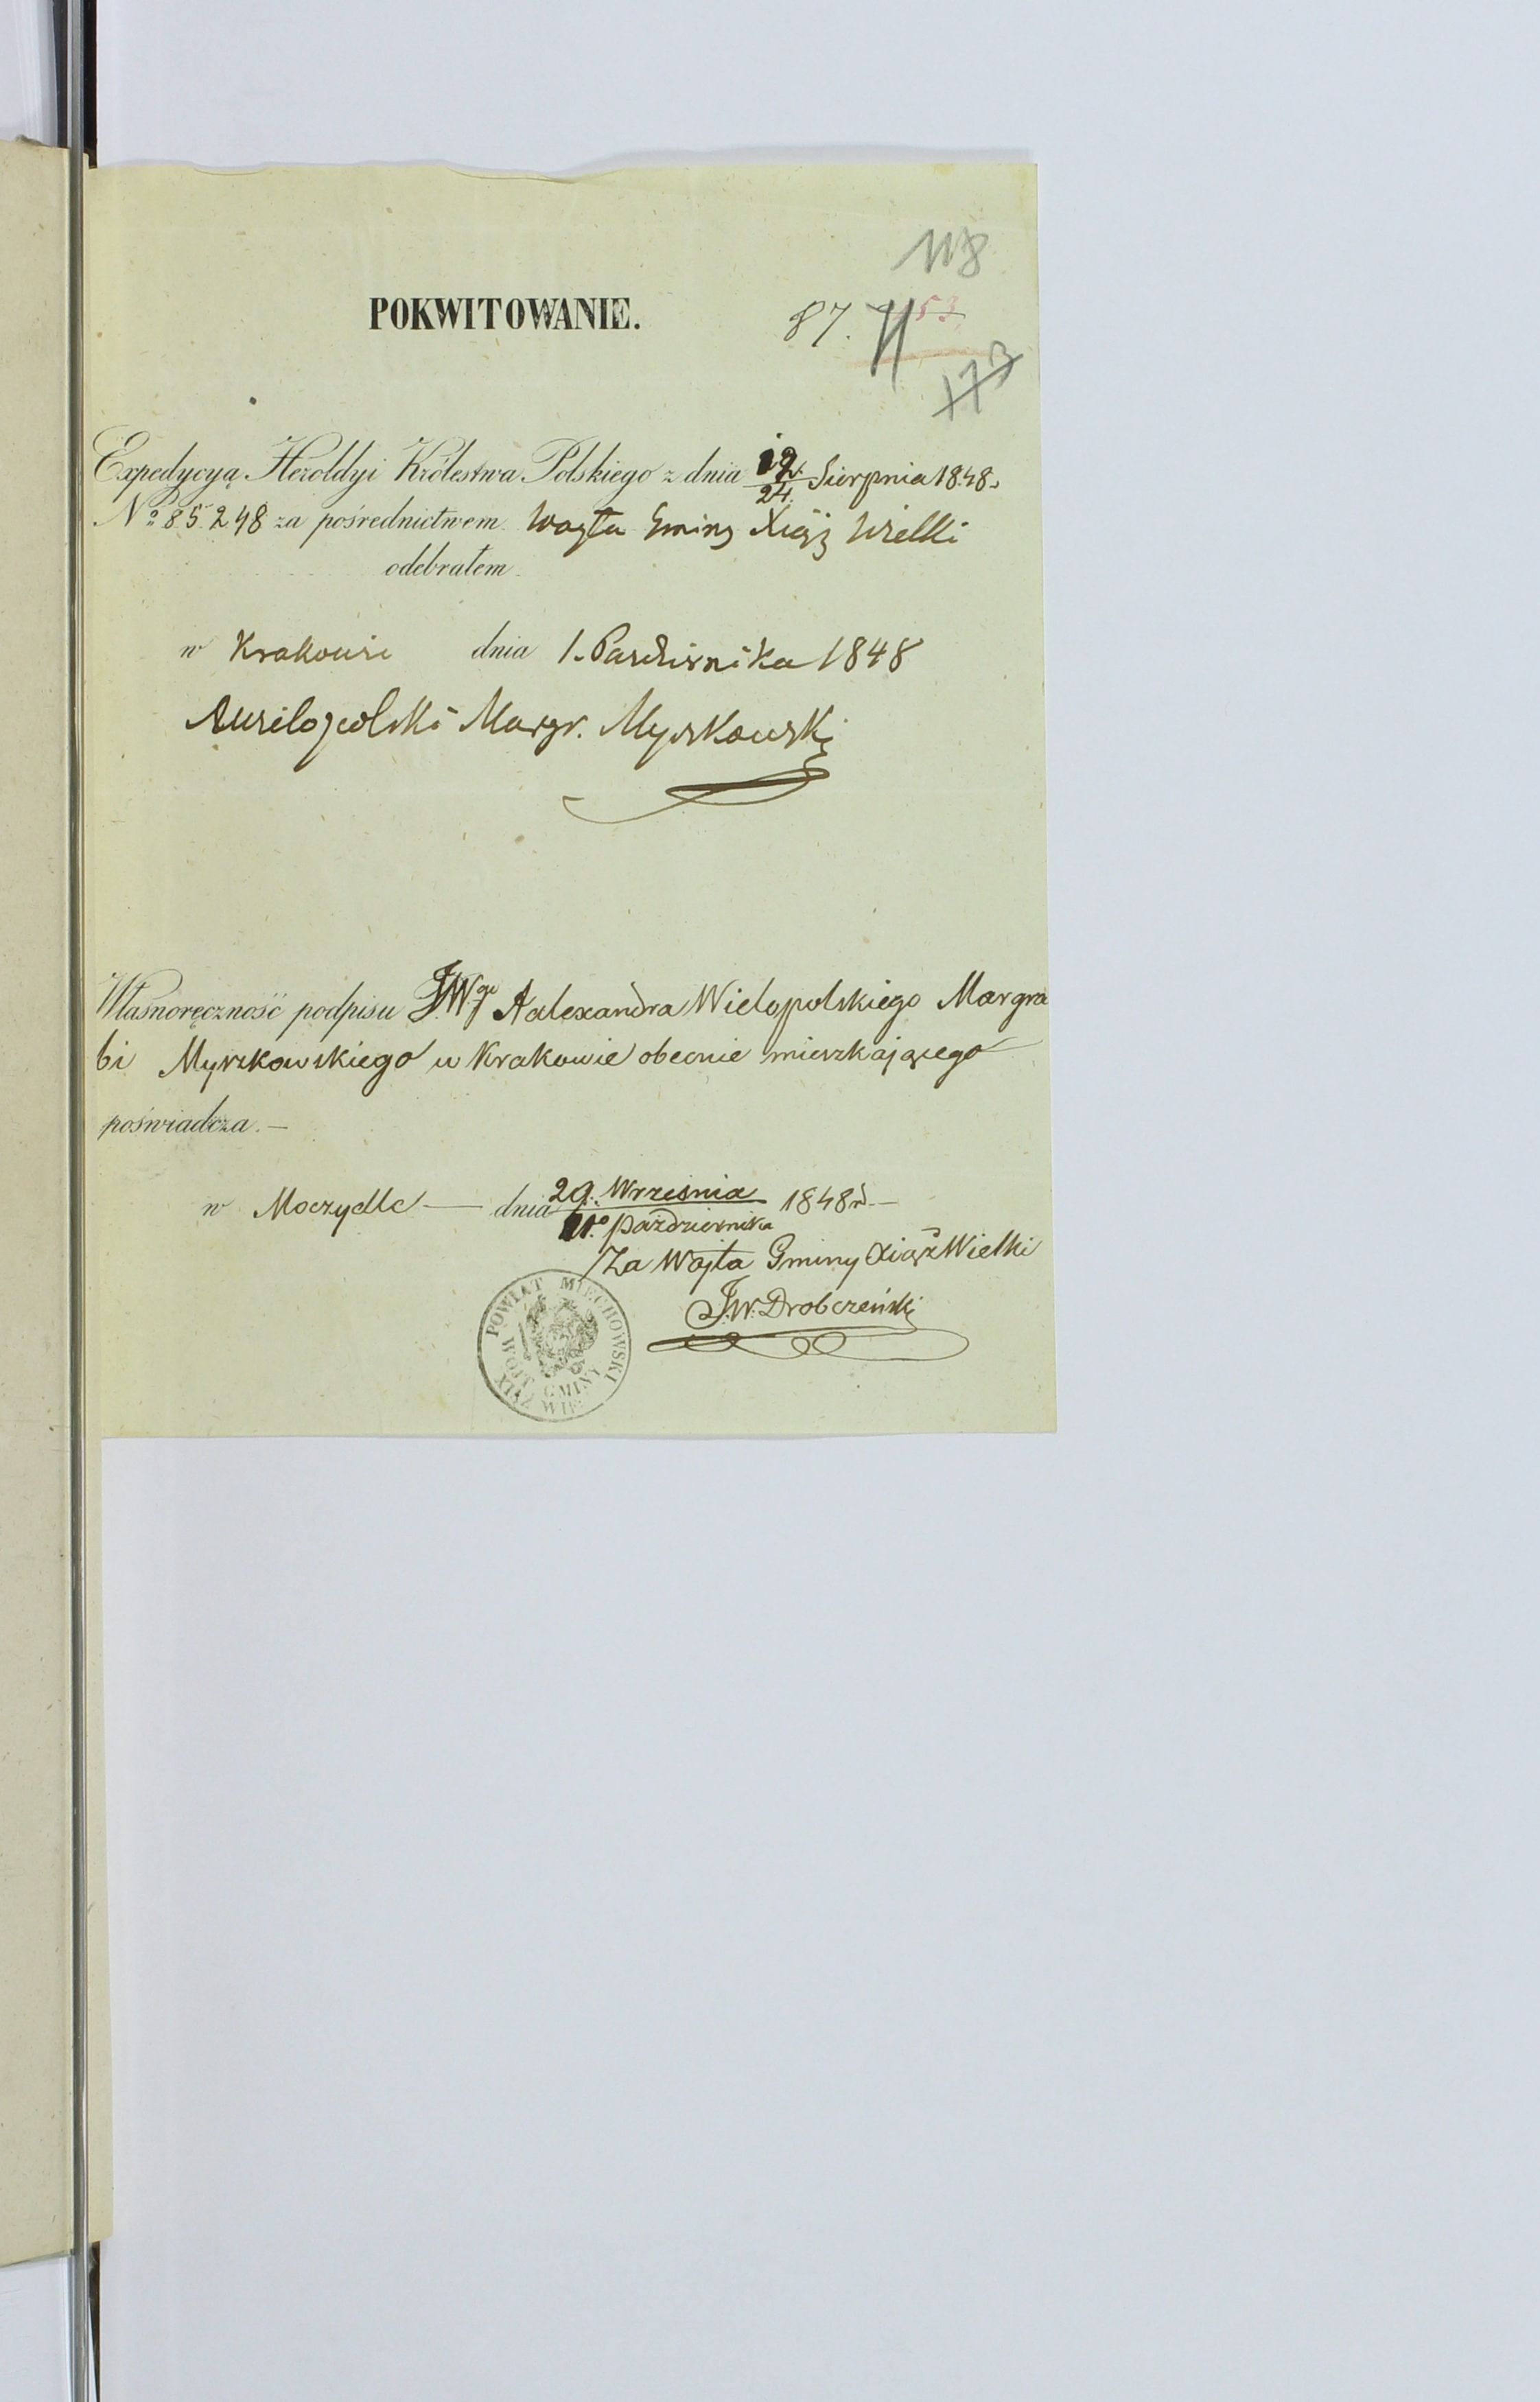 118
POKWITOWANIE.
87. 53
173
Expedycyą Heroldyi Królestwa Polskiego z dnia 12/24. Sierpnia 1848.
No 85248 za pośrednictwem Woyta Gminy Xiąż Wielki
odebrałem
w Krakowie dnia 1. Pazdziernika 1848
AWielopolski Margr. Myszkowski
Własnoręczność podpisu JWgo Aalexandra Wielopolskiego Margra
bi Myszkowskiego w Krakowie obecnie mieszkającego
poświadcza.—
w Moczydle — dnia 29. Września / 11o października 1848 r.—
Za Wójta Gminy Xiąż Wielki
J.W. Drobczeński
POWIAT MIECHOWSKI
WÓJT GMINY
XIĄŻ WIEL